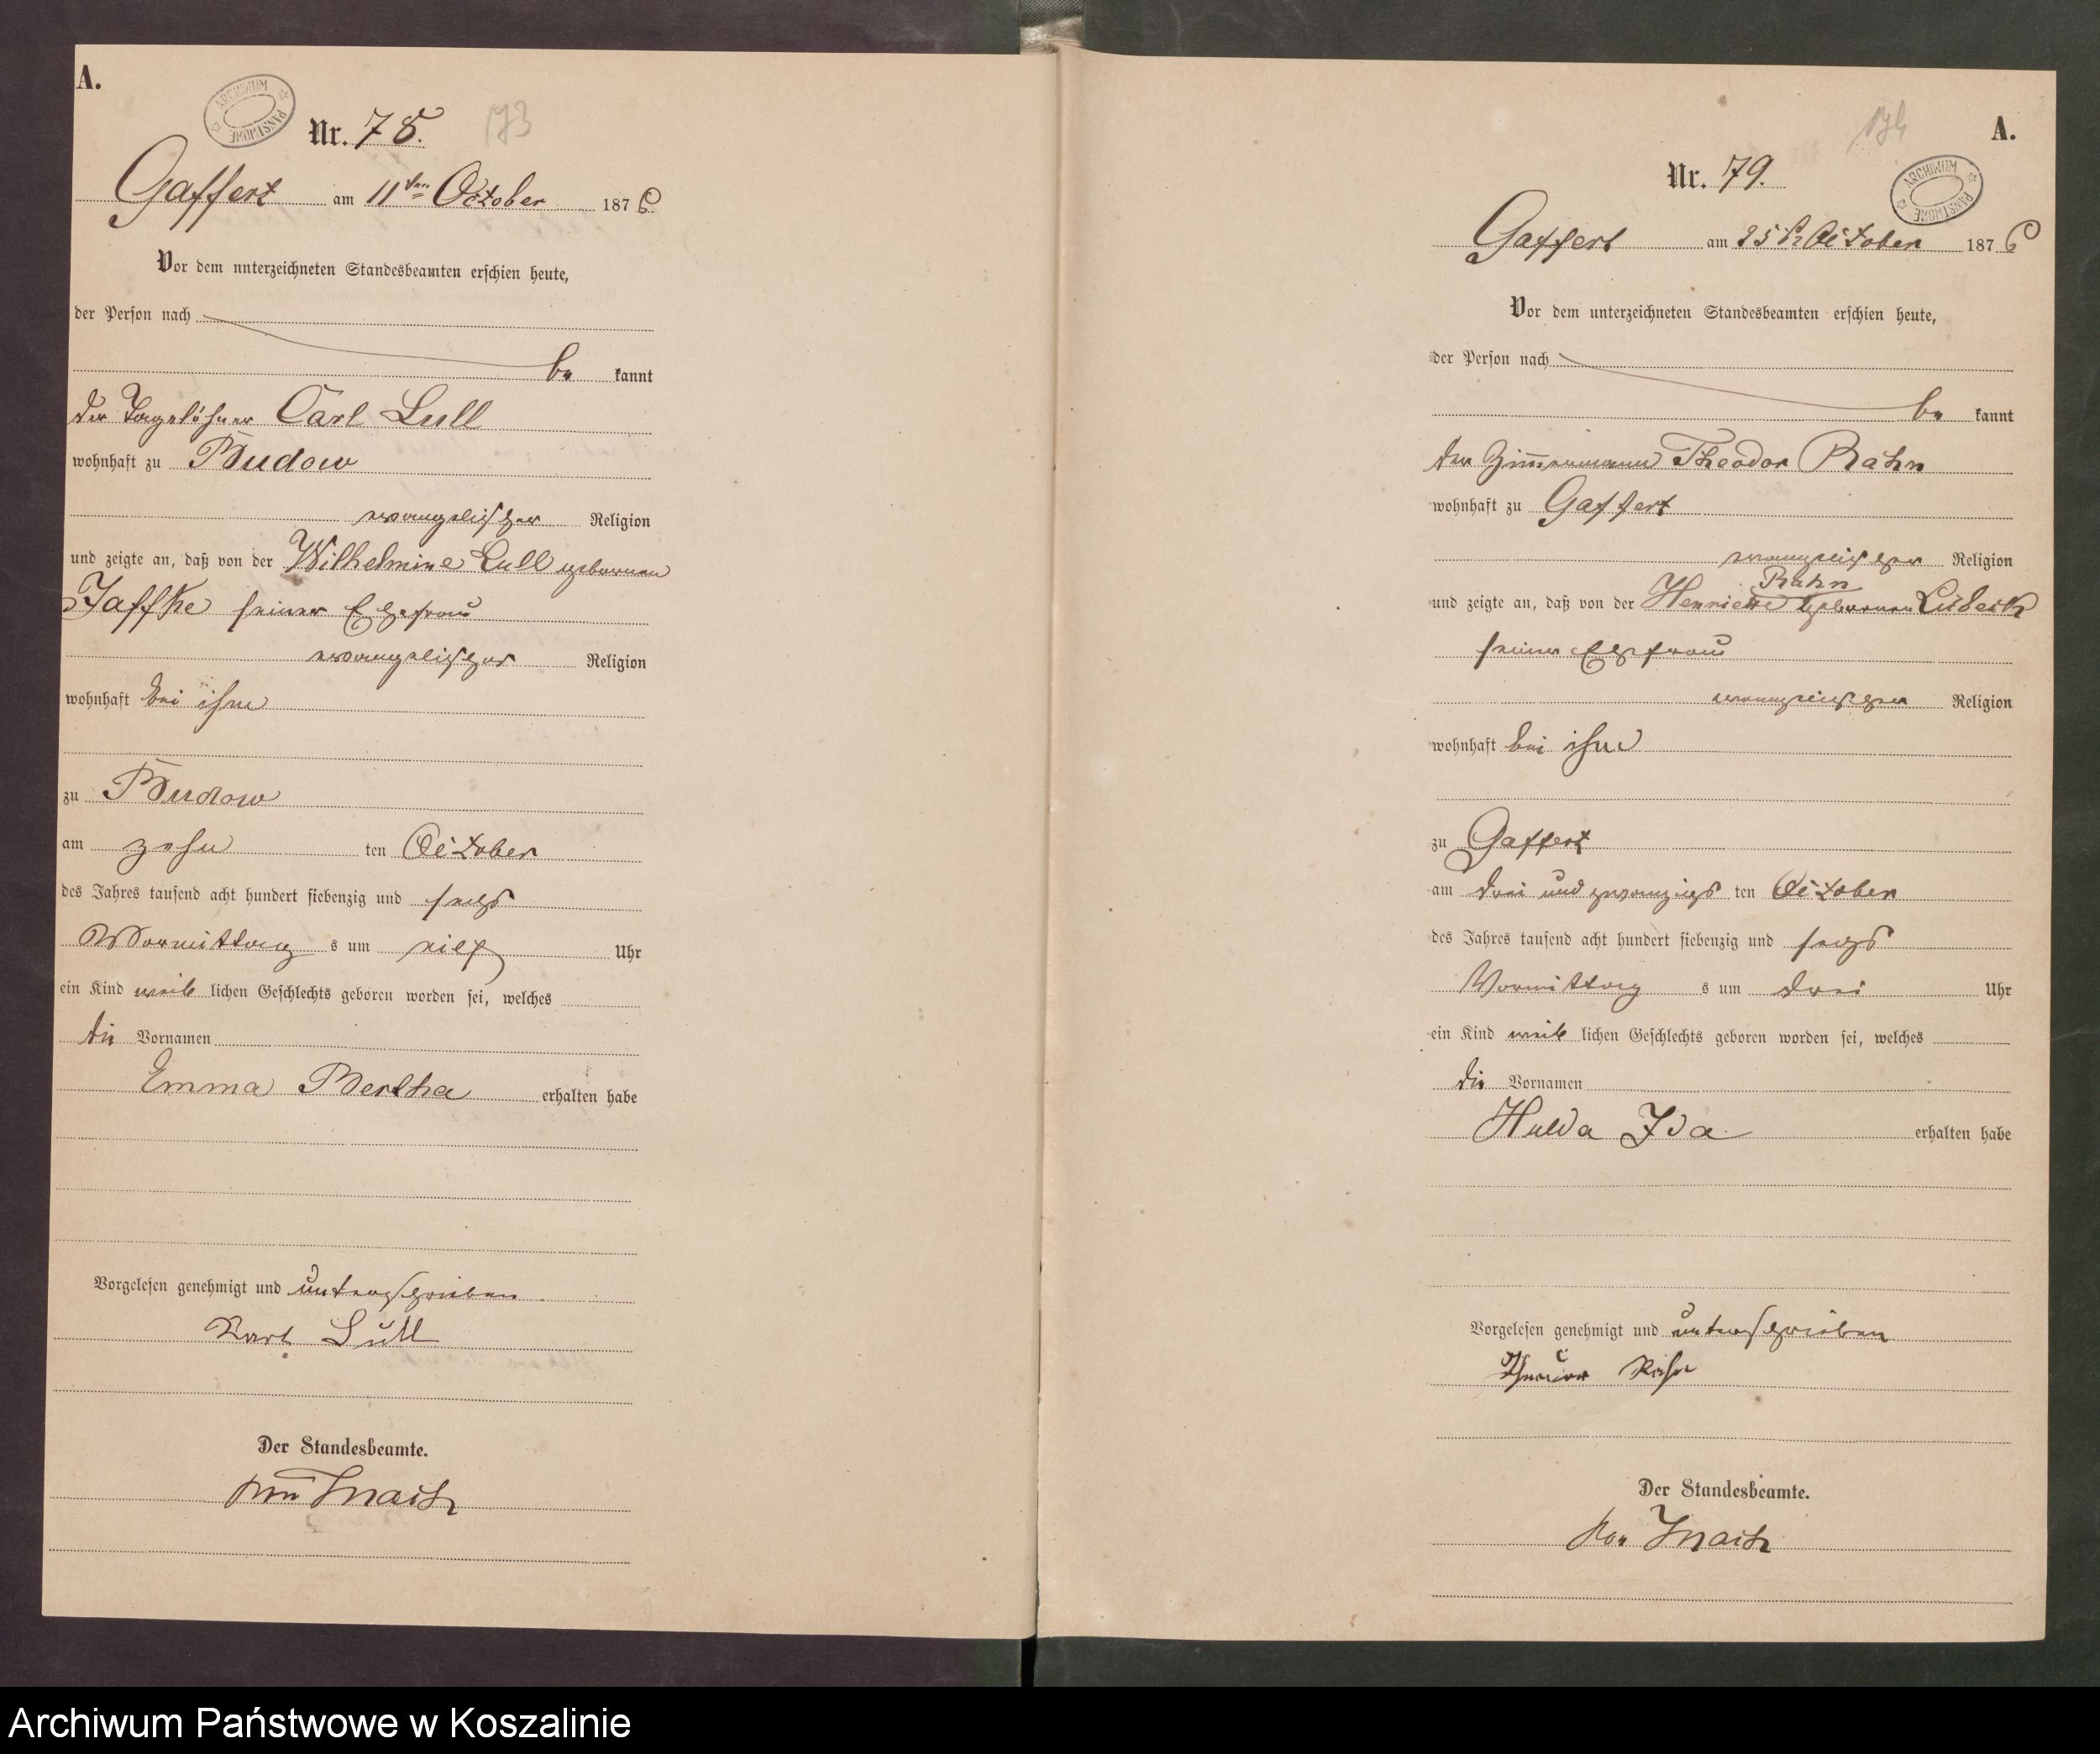 A.
ARCHIWUM PAŃSTWOWE
Nr. 78.
173
Gaffert am 11ten October 1876
Vor dem unterzeichneten Standesbeamten erschien heute,
der Person nach
be kannt
der Tagelöhner Carl Lull
wohnhaft zu Budow
evangelischer Religion
und zeigte an, daß von der Wilhelmine Lull geborenen
Jaffke seiner Ehefrau
evangelischer Religion
wohnhaft bei ihm
zu Budow
am zehn ten October
des Jahres tausend acht hundert siebenzig und sechs
Vormittag s um eilf Uhr
ein Kind weib lichen Geschlechts geboren worden sei, welches
die Vornamen
Emma Bertha erhalten habe
Vorgelesen genehmigt und unterschrieben
Karl Lull
Der Standesbeamte.
von
A.
174
ARCHIWUM PAŃSTWOWE
Nr. 79.
Gaffert am 25th October 1876
Vor dem unterzeichneten Standesbeamten erschien heute,
der Person nach
be kannt
der Zimmermann Theodor Rahn
wohnhaft zu Gaffert
evangelischer Religion
Rahn
und zeigte an, daß von der Henriette geborenen Lübeck
seiner Ehefrau
evangelischer Religion
wohnhaft bei ihm
zu Gaffert
am drei und zwanzigs ten October
des Jahres tausend acht hundert siebenzig und sechs
Vormittag s um drei Uhr
ein Kind weib lichen Geschlechts geboren worden sei, welches
die Vornamen
Hulda Ida erhalten habe
Vorgelesen genehmigt und unterschrieben
Theodor Rahn
Der Standesbeamte.
von
Archiwum Państwowe w Koszalinie